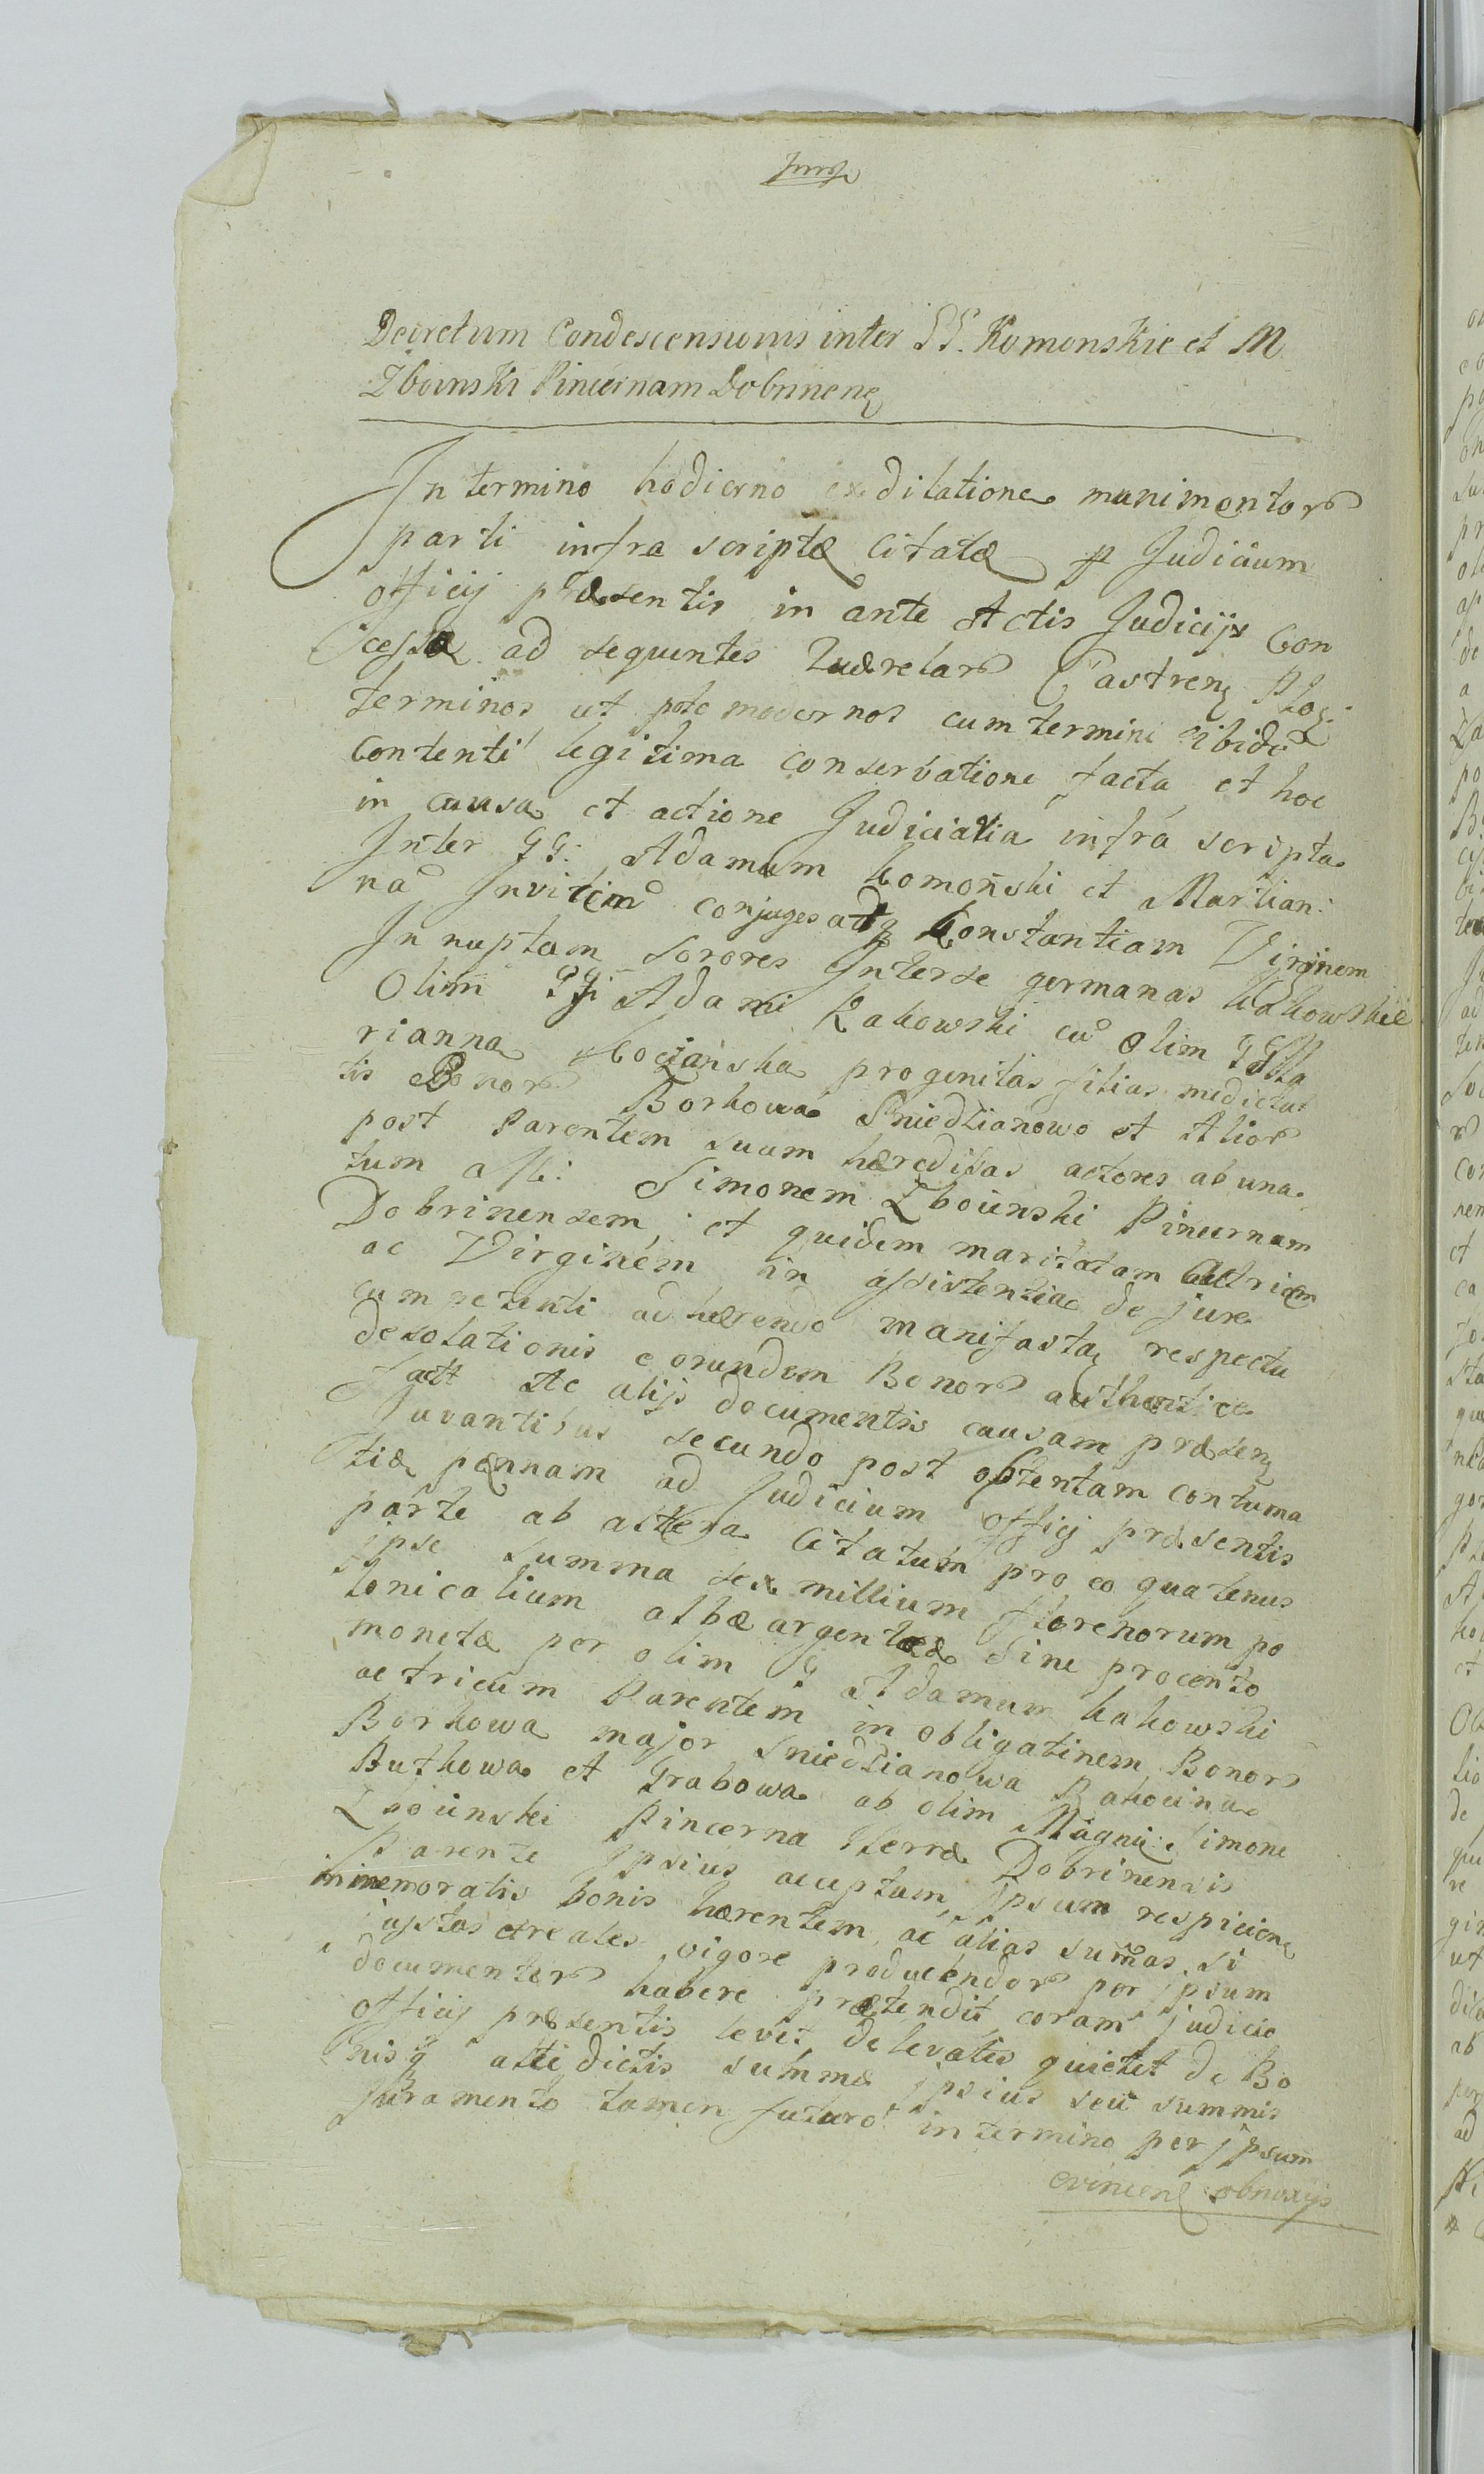 Decretum Condescensionis inter GG. Komonskie et M
Zboinski Pincernam Dobrinenę
In termino hodierno ex dilatione munimentor
parti infra scriptæ Citatæ p Judicium
officij præsentis in ante Actis Judicijs Con
cessæ ad sequentes Quærelar Castrenę Ploę:
terminos ut pote modernos cum termini ibidē
Contenti legitima conservatione facta et hoc
in causa et actione Judiciaria infra scripta
Inter GG: Adamum Komoński et Martian:
na conjuges atq Constantiam Virginem
In nuptam sorores Interse germanas Kakowskie
Olim GG: Adami Kakowski cū olim GG Ma
rianna Kocianska progenitas filias medieta
tis Bonor Borkowa Sniedzianowo et Alior
post Parentem suum hæreditas actores ab una
tum Simonem Zboinski Pincernam
Dobrinensem, et quidem maritatam Actricem
ac Virginem in assistentia de jure
cumpetenti adhærendo manifestaę respectu
desolationis eorundem Bonor authentice
factt Ac alijs documentis causam præsenę
Juvantibus secundo post obtentam contuma
tiæ pœnnam ad Judicium officij præsentis
parte ab altera Citatum pro eo quatenus
ipse summa sex millium florenorum po
lonicalium albæ argenteæ Sine procento
monetæ per olim G Adamum Kakowski
actricum Parentem in obligatinem Bonor
Borkowa major Sniedzianowa Rakocina
Rutkowa et Grabowa ab olim Magnii: Simone
Zboinski Pincerna terræ Dobrinensis
Parente Ipsius acceptum Ipsum respicienę
in memoratis bonis hærentem, ac alias sumas si
justas et reales vigore producendor per ipsum
documentor habere prætendit coram judicio
officij præsentis levet de levatis quietet de Bo
nisq attidictis summæ ipsius seu summis
Juramento tamen futuro in termino per ipsum
evincenę obnoxijs